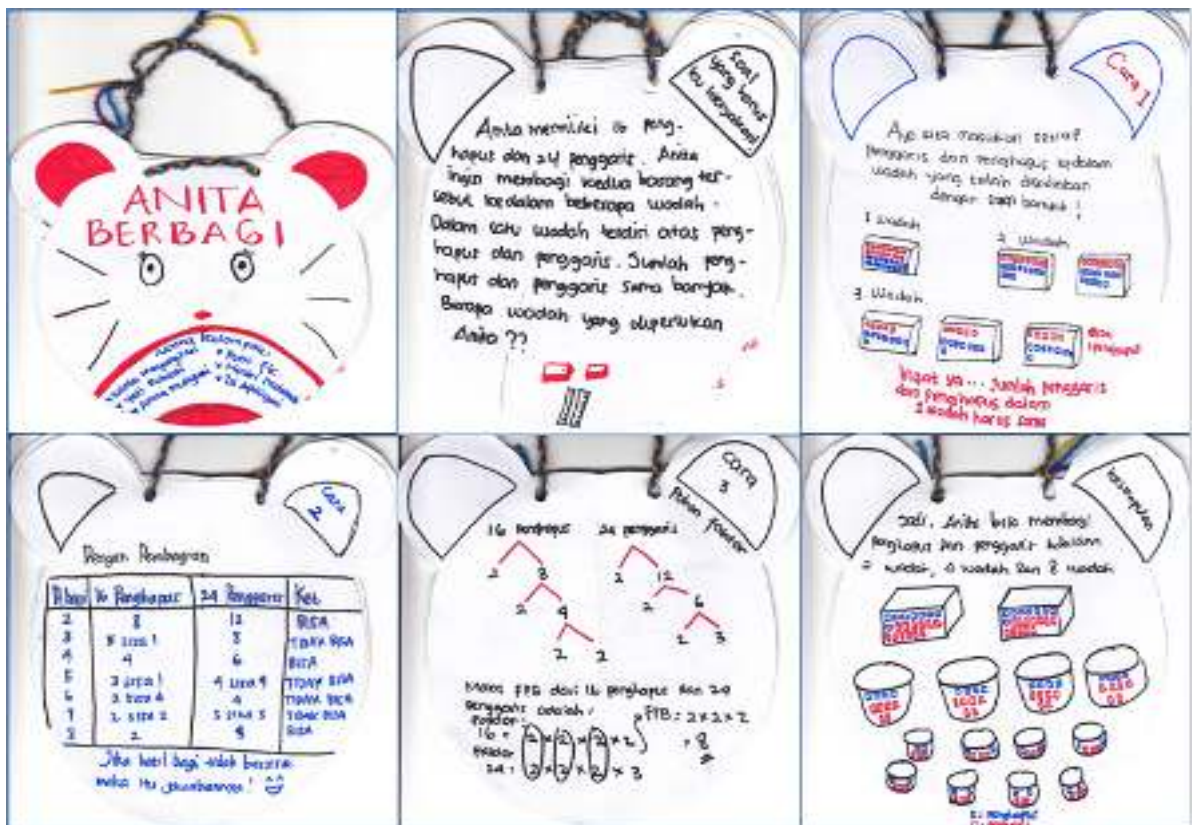 ANITA
BERBAGI
soal
yang harus
Anita memiliki 16 peng-
hapus dan 24 penggaris. Anita
ingin membagi kedua barang ter-
sebut kedalam beberapa wadah.
Dalam satu wadah terdiri atas peng-
hapus dan penggaris. Jumlah peng-
hapus dan penggaris sama banyak.
Berapa wadah yang diperlukan
Anita ??
Cara I
Ayo kita masukan setiap
penggaris dan penghapus kedalam
wadah yang telah
dengan sama banyak !
1 wadah
2 wadah
3 wadah
Ingat ya... Jumlah penggaris
dan penghapus dalam
1 wadah harus sama
Cara
2
Dengan Pembagian
Dibagi 16 Penghapus 24 Penggaris Ket
2 8 12 BISA
3 5 sisa 1 8 TIDAK BISA
4 4 6 BISA
5 3 sisa 1 4 sisa 4 TIDAK BISA
6 2 sisa 4 4 TIDAK BISA
7 2 sisa 2 3 sisa 3 TIDAK BISA
8 2 BISA
Jika hasil bagi tidak bersisa
maka itu jawabannya !
Cara
3
Pohon faktor
16 penghapus 24 penggaris
2 8 2 12
2 4 2 6
2 2 2 3
Maka FPB dari 16 penghapus dan 24
penggaris adalah :
Faktor :
16 = 2 x 2 x 2 x 2
Faktor
24 : 2 x 2 x 2 x 3
FPB = 2 x 2 x 2
= 8
kesimpulan
Jadi, Anita bisa membagi
penghapus dan penggaris kedalam
2 wadah, 4 wadah dan 8 wadah